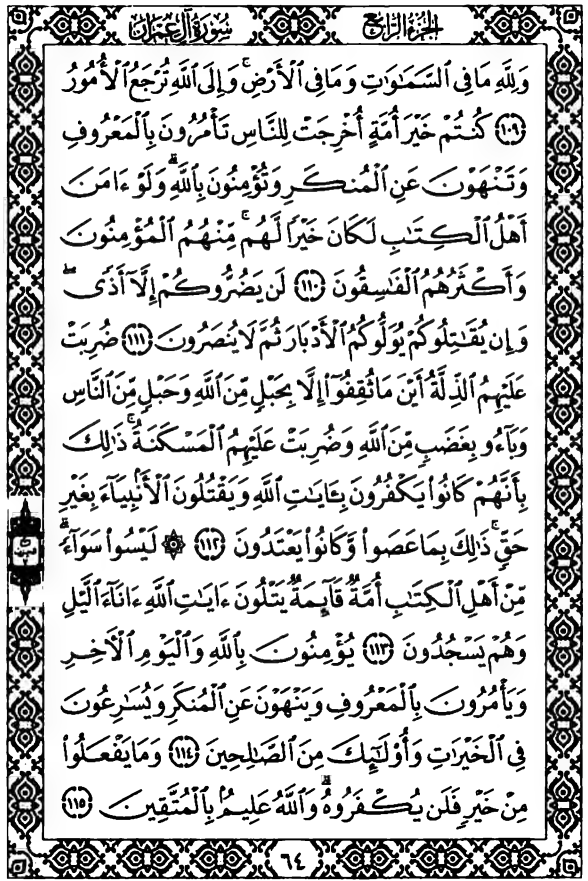 سُورَةُ آلِ عِمْرَانَ الجُزْءُ الرَّابِعُ
وَلِلَّهِ مَا فِي السَّمَٰوَٰتِ وَمَا فِي الْأَرْضِ ۚ وَإِلَى اللَّهِ تُرْجَعُ الْأُمُورُ
﴿١٠٩﴾ كُنتُمْ خَيْرَ أُمَّةٍ أُخْرِجَتْ لِلنَّاسِ تَأْمُرُونَ بِالْمَعْرُوفِ
وَتَنْهَوْنَ عَنِ الْمُنكَرِ وَتُؤْمِنُونَ بِاللَّهِ ۗ وَلَوْ ءَامَنَ
أَهْلُ الْكِتَٰبِ لَكَانَ خَيْرًا لَّهُم ۚ مِّنْهُمُ الْمُؤْمِنُونَ
وَأَكْثَرُهُمُ الْفَٰسِقُونَ ﴿١١٠﴾ لَن يَضُرُّوكُمْ إِلَّآ أَذًى ۖ
وَإِن يُقَٰتِلُوكُمْ يُوَلُّوكُمُ الْأَدْبَارَ ثُمَّ لَا يُنصَرُونَ ﴿١١١﴾ ضُرِبَتْ
عَلَيْهِمُ الذِّلَّةُ أَيْنَ مَا ثُقِفُوٓا إِلَّا بِحَبْلٍ مِّنَ اللَّهِ وَحَبْلٍ مِّنَ النَّاسِ
وَبَآءُو بِغَضَبٍ مِّنَ اللَّهِ وَضُرِبَتْ عَلَيْهِمُ الْمَسْكَنَةُ ۚ ذَٰلِكَ
بِأَنَّهُمْ كَانُوا يَكْفُرُونَ بِـَٔايَٰتِ اللَّهِ وَيَقْتُلُونَ الْأَنۢبِيَآءَ بِغَيْرِ
حَقٍّ ۚ ذَٰلِكَ بِمَا عَصَوا وَّكَانُوا يَعْتَدُونَ ﴿١١٢﴾ ۞ لَيْسُوا سَوَآءً ۗ
مِّنْ أَهْلِ الْكِتَٰبِ أُمَّةٌ قَآئِمَةٌ يَتْلُونَ ءَايَٰتِ اللَّهِ ءَانَآءَ الَّيْلِ
وَهُمْ يَسْجُدُونَ ﴿١١٣﴾ يُؤْمِنُونَ بِاللَّهِ وَالْيَوْمِ الْءَاخِرِ
وَيَأْمُرُونَ بِالْمَعْرُوفِ وَيَنْهَوْنَ عَنِ الْمُنكَرِ وَيُسَٰرِعُونَ
فِي الْخَيْرَٰتِ وَأُو۟لَٰٓئِكَ مِنَ الصَّٰلِحِينَ ﴿١١٤﴾ وَمَا يَفْعَلُوا
مِنْ خَيْرٍ فَلَن يُكْفَرُوهُ ۗ وَاللَّهُ عَلِيمٌۢ بِالْمُتَّقِينَ ﴿١١٥﴾
٦٤